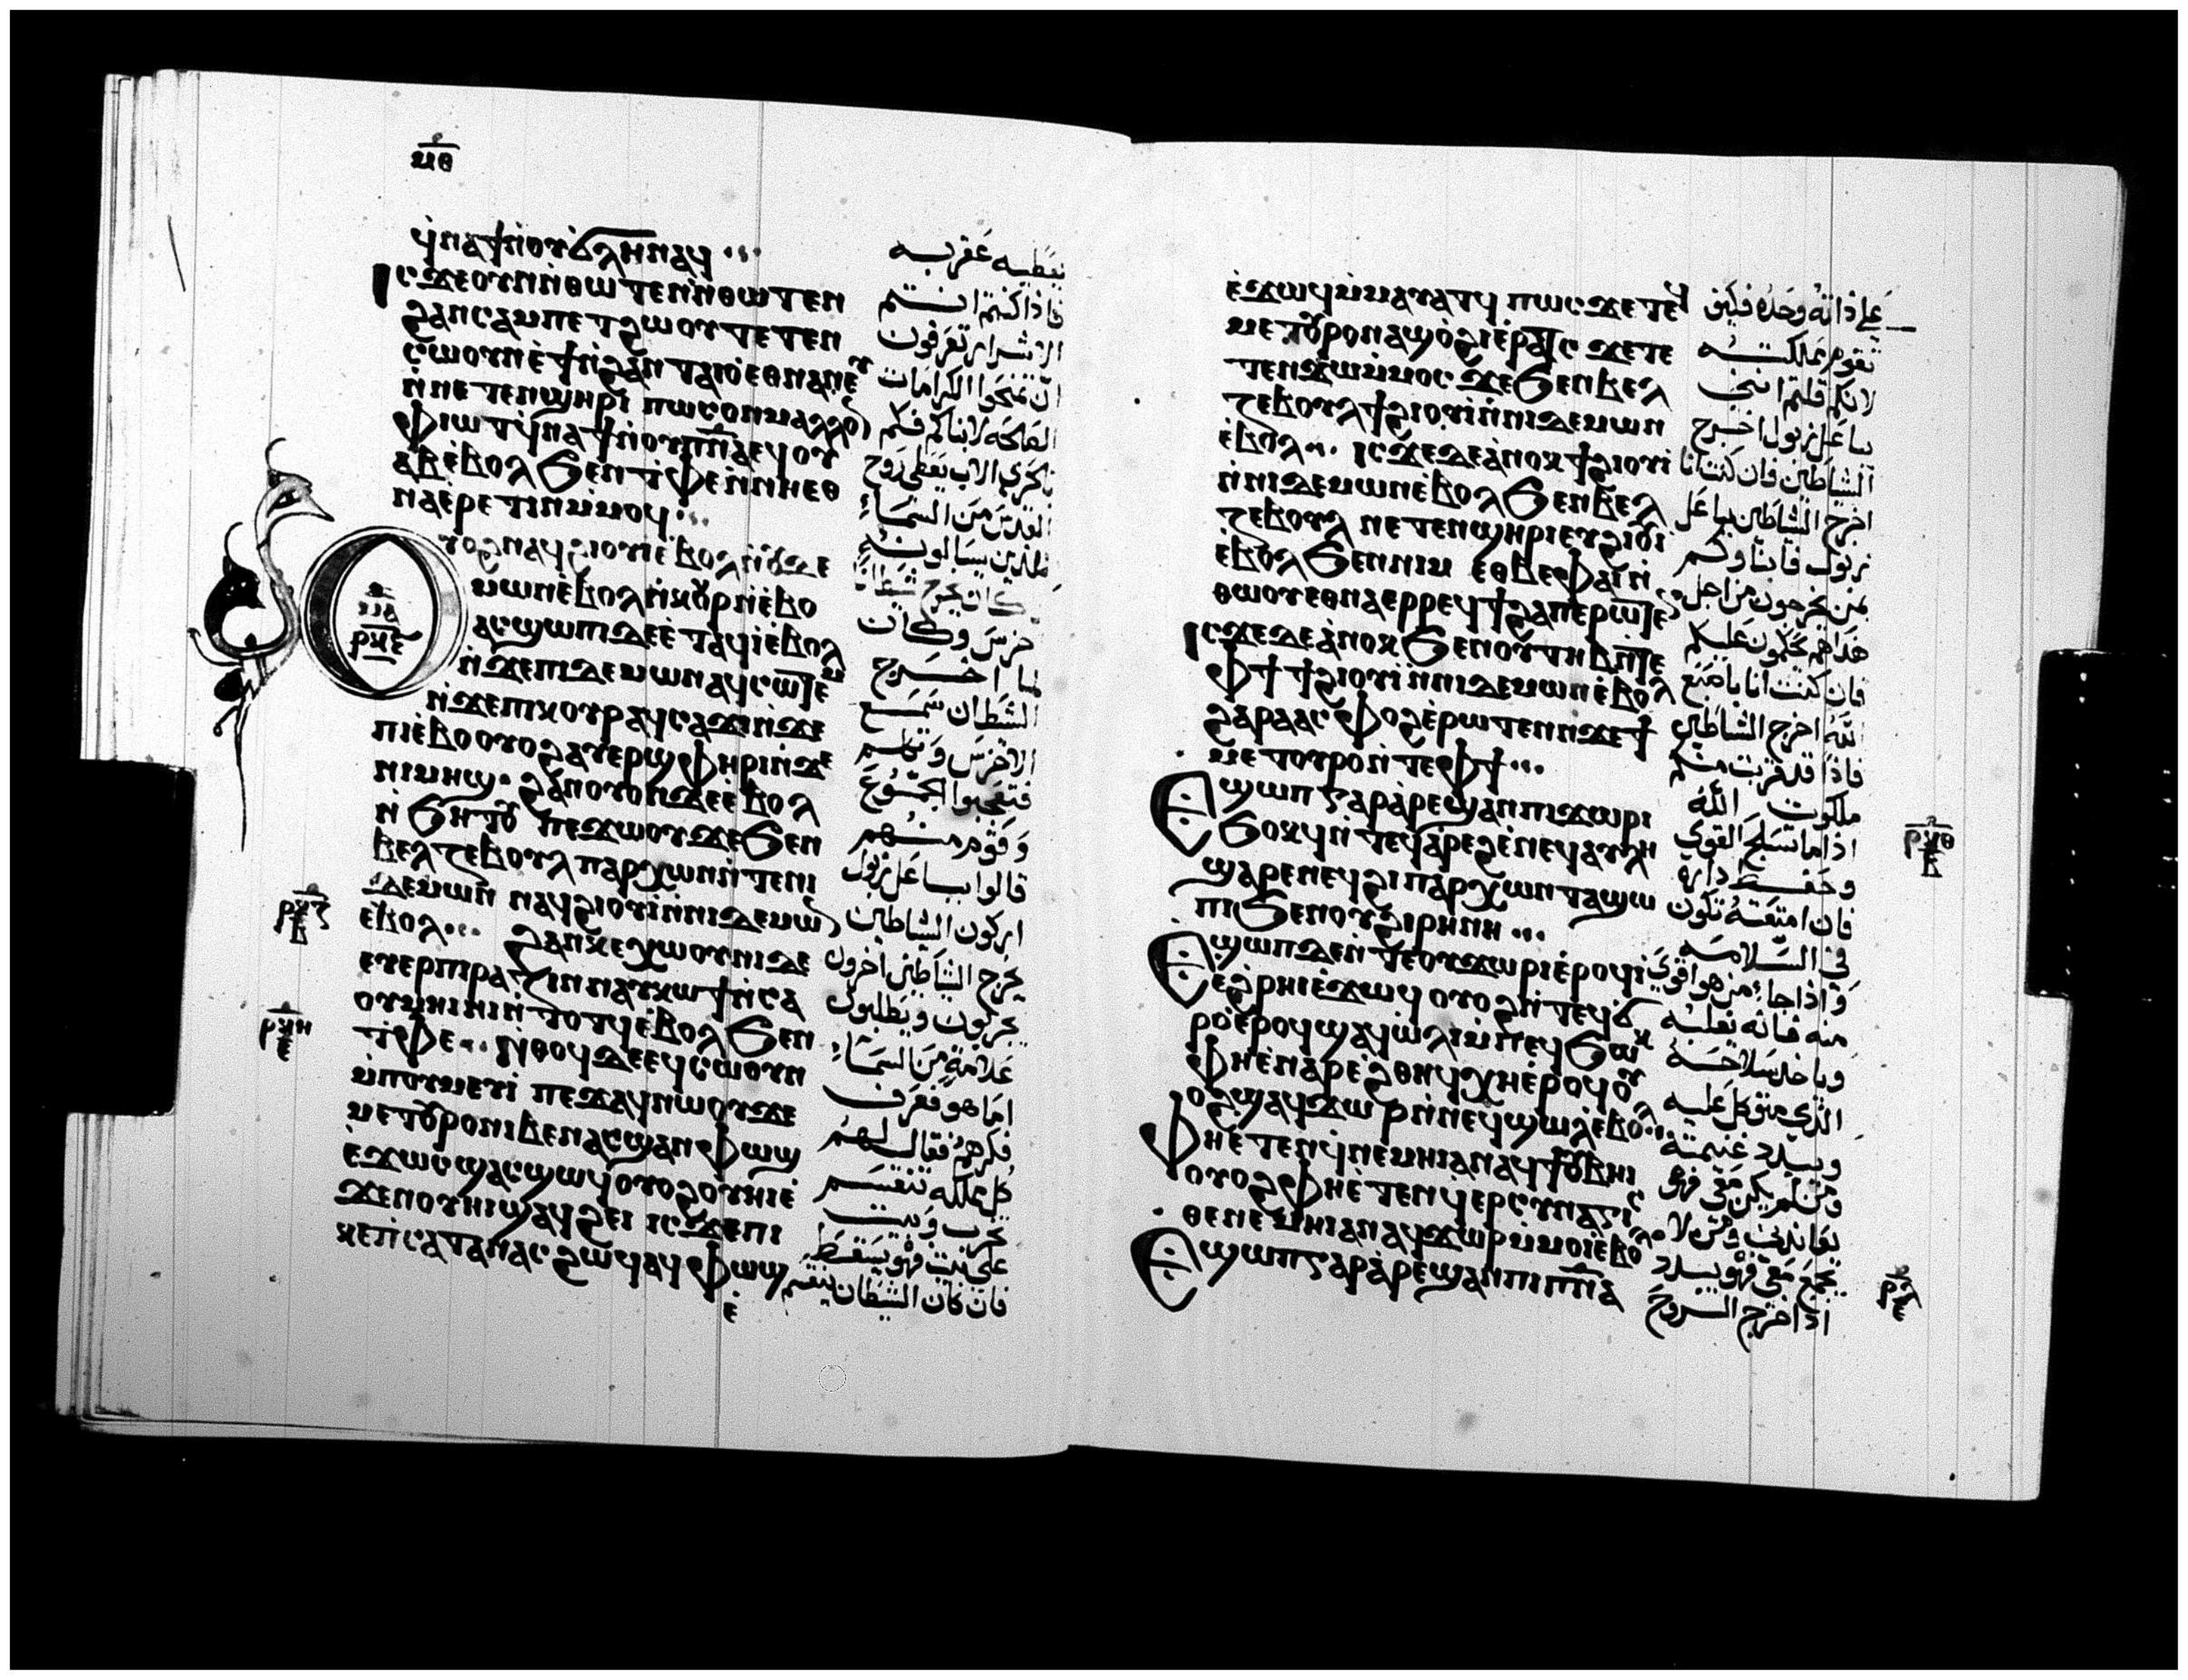 ⲙ̅ⲑ̅
ϥⲛⲁϯⲛⲟⲩϭⲗⲏⲛⲁϥ
ⲓⲥϫⲉⲟⲩⲛⲛ̀ⲑⲱⲧⲉⲛⲛ̀ⲑⲱⲧⲉⲛ
ϩⲁⲛⲥⲁⲙⲡⲉⲧϩⲱⲟⲩⲧⲉⲧⲉⲛ
ⲥⲱⲟⲩⲛⲉ̀ϯⲛ̀ϩⲁⲛⲧⲁⲓⲟ̀ⲉⲑⲛⲁⲛⲉⲩ
ⲛ̀ⲛⲉⲧⲉⲛϣⲏⲣⲓ ⲡⲱⲥⲟⲛⲙⲁⲗⲗⲟ
ⲫⲓⲱⲧϥ̀ⲛⲁϯⲛ̀ⲟⲩⲡ̅ⲛ̅ⲁ̅ⲉϥⲟⲩ
ⲁⲃⲉ̀ⲃⲟⲗϧⲉⲛⲧ̀ⲫⲉⲛ̀ⲛⲏⲉⲑ
ⲛⲁⲉ̀ⲣⲉⲧⲓⲛⲙ̀ⲙⲟϥ
ⲟⲩⲟϩⲛⲁϥϩⲓⲟⲩⲓⲉ̀ⲃⲟⲗⲛ̀ⲟⲩⲇⲉ
ⲙⲱⲛⲉ̀ⲃⲟⲗⲛ̀ⲕⲟⲩⲣⲛ̀ⲉ̀ⲃⲟ
ⲁⲥϣⲱⲡⲓⲇⲉⲉ̀ⲧⲁϥⲓ̀ⲉ̀ⲃⲟⲗ
ⲛ̀ϫⲉⲡⲓⲇⲉⲙⲱⲛⲁϥⲥⲱⲧⲉⲙ
ⲛ̀ϫⲉⲡⲓⲕⲟⲩⲣⲁϥⲥⲁϫⲓⲛ̀ϫⲉ
ⲡⲓⲉ̀ⲃⲟⲟⲩⲟϩⲁⲩⲉⲣϣⲫⲏⲣⲓⲛ̀ϫⲉ
ⲛⲓⲙⲏϣ ϩⲁⲛⲟⲩⲟⲛⲇⲉⲉ̀ⲃⲟⲗ
ⲛ̀ϧⲏⲧⲟⲩ ⲡⲉϫⲱⲟⲩϫⲉϧⲉⲛ
ⲃⲉⲗⲍⲉⲃⲟⲩⲗⲡⲁⲣⲭⲱⲛⲛ̀ⲧⲉⲛⲓ
ⲇⲉⲙⲱⲛ ⲛⲁϥϩⲓⲟⲩⲓⲛ̀ⲛⲓⲇⲉⲙⲱ
ⲉⲃⲟⲗ ϩⲁⲛⲕⲉⲭⲱⲟⲩⲛⲓⲇⲉ
ⲉⲩⲉⲣⲡⲓⲣⲁⲍⲓⲛⲛⲁⲩⲕⲱϯⲛ̀ⲥⲁ
ⲟⲩⲙⲏⲓⲛⲓⲛ̀ⲧⲟⲧϥⲉ̀ⲃⲟⲗϧⲉⲛ
ⲧ̀ⲫⲉ ⲛ̀ⲑⲟϥⲇⲉⲉϥⲥⲱⲟⲩⲛ
ⲙ̀ⲡⲟⲩⲙⲉⲩⲓ ⲡⲉϫⲁϥⲛⲱⲟⲩϫⲉ
ⲙⲉⲧⲟⲩⲣⲟⲛⲓⲃⲉⲛⲁⲥϣⲁⲛⲫⲱϣ
ⲉ̀ϫⲱⲥϣⲁⲥϣⲱϥⲟⲩⲟϩⲟⲩⲏⲓⲉ̀
ϫⲉⲛⲟⲩⲏⲓϣⲁϥϩⲉⲓ ⲓⲥϫⲉⲡⲓ
ⲕⲉⲡ̀ⲥⲁⲧⲁⲛⲁⲥϩⲱϥⲁϥⲫⲱϣ
ⲉ̀
ⲣ̅ⲕ̅ⲉ̅
ⲣ̅ⲕ̅ⲍ̅
ⲣ̅ⲕ̅ⲏ̅
يعطيه عقربه
فاذا كنتم انتم
الاشرار تعرفون
ان تمنحوا الكرامات
الصالحه لابناكم فكم
بالحري الاب يعطي روح
القدس من السماء
للذين يسالونه
كان يخرج شيطانا
خرس وكان
لما اخرج
الشيطان سمع
الاخرس وتكلم
فتعجبوا الجموع
وقوم منهم
قالوا بباعل زبول
اركون الشياطين
يخرج الشياطين اخرون
يجربون ويطلبون
علامة من السماء
اما هو فعرف
فكرهم فقال لهم
كل مملكه تنقسم
تخرب وبيت
على بيت فهو يسقط
فان كان الشيطان ينقسم
ⲉ̀ϫⲱϥⲙ̀ⲙⲁⲩⲁⲧϥ ⲡⲱⲥϫⲉⲧⲉϥ
ⲙⲉⲧⲟⲩⲣⲟⲛⲁϣⲟ̀ϩⲓⲉ̀ⲣⲁⲧⲥ ϫⲉⲧⲉ
ⲧⲉⲛϫⲱⲙ̀ⲙⲟⲥ ϫⲉϧⲉⲛⲃⲉⲗ
ⲍⲉⲃⲟⲩⲗϯϩⲓⲟⲩⲓⲛ̀ⲛⲓⲇⲉⲙⲱⲛ
ⲉ̀ⲃⲟⲗ ⲓⲥϫⲉⲇⲉⲁ̀ⲛⲟⲕϯϩⲓⲟⲩⲓ
ⲛ̀ⲛⲓⲇⲉⲙⲱⲛⲉ̀ⲃⲟⲗϧⲉⲛⲃⲉⲗ
ⲍⲉⲃⲟⲩⲗ ⲛⲉⲧⲉⲛϣⲏⲣⲓⲉⲩϩⲓⲟⲩⲓ
ⲉ̀ⲃⲟⲗϧⲉⲛⲛⲓⲙ ⲉⲑⲃⲉⲫⲁⲓⲛ̀
ⲑⲱⲟⲩⲉⲑⲛⲁⲉⲣⲣⲉϥϯϩⲁⲡⲉⲣⲱⲧⲉⲛ
ⲓⲥϫⲉⲇⲉⲁ̀ⲛⲟⲕϧⲉⲛⲟⲩⲧⲏⲃⲛ̀ⲧⲉ
ⲫϯ ϯϩⲓⲟⲩⲓⲛ̀ⲛⲓⲇⲉⲙⲱⲛⲉ̀ⲃⲟⲗ
ϩⲁⲣⲁⲁⲥⲫⲟϩⲉ̀ⲣⲱⲧⲉⲛⲛϫⲉϯ
ⲙⲉⲧⲟⲩⲣⲟⲛ̀ⲧⲉⲫϯ
ⲉϣⲱⲡⲅⲁⲣⲁ̀ⲣⲉϣⲁⲛⲡⲓϫⲱⲣⲓ
ϧⲟⲕϥⲛ̀ⲧⲉϥⲁ̀ⲣⲉϩⲉ̀ⲛⲉϥⲁⲩⲗⲏ
ϣⲁⲣⲉⲛⲉϥϩⲓⲡⲁⲣⲭⲱⲛⲧⲁϣⲱ
ⲡⲓϧⲉⲛⲟⲩϩⲓⲣⲏⲛⲏ
ⲉϣⲱⲡⲇⲉⲛ̀ⲧⲉⲟⲩϫⲱⲣⲓⲉ̀ⲣⲟϥⲓ̀
ⲉϩⲣⲏⲓⲉ̀ϫⲱϥ ⲟⲩⲟϩⲛ̀ⲧⲉϥϭ
ⲣⲟⲉ̀ⲣⲟϥϣⲁϥⲱ̀ⲗⲓⲙ̀ⲡⲉϥϧⲱⲕ
ⲫⲏⲉ̀ⲛⲁⲣⲉϩⲑⲏϥⲭⲏⲉ̀ⲣⲟϥⲟⲩ
ⲟϩϣⲁϥϫⲱⲣⲛ̀ⲛⲉϥϣⲱⲗⲉ̀ⲃⲟⲗ
ⲫⲏⲉ̀ⲧⲉⲛϥ̀ⲛⲉⲙⲏⲓⲁⲛⲁϥϯⲟⲩⲃⲏⲓ
ⲟⲩⲟϩⲫⲏⲉ̀ⲧⲉⲛϥⲉⲣⲥⲩⲛⲁⲅⲓⲥ
ⲑⲉⲛⲉⲙⲏⲓⲁⲛⲁϥϫⲱⲣⲙ̀ⲙⲟⲓⲉ̀ⲃⲟⲗ
ⲉϣⲱⲡⲅⲁⲣⲁ̀ⲣⲉϣⲁⲛⲡⲓⲡ̅ⲛ̅ⲁ̅
ⲣ̅ⲕ̅ⲑ̅
ⲣ̅ⲗ̅
على ذاته وحده فكيف
تقوم مملكته
لانكم قلتم انني
بباعل زبول اخرج
الشياطين فان كنت انا
اخرج الشياطين بباعل
زبول فابناوكم
بمن يخرجون من اجل
هذا هم يحكمون عليكم
فان كنت انا باصبع
الله اخرج الشياطين
فاذا قد قربت منكم
ملكوت الله
اذا ما تسلح القوي
وحفظ داره
فان امتعته تكون
في السلامه
واذا جاء من هو اقوي
منه فانه يغلبه
وياخذ سلاحه
الذي يتوكل عليه
ويبدد غنيمته
ومن لم يكن معي فهو
يعاندني ومن لا
يجمع معي فهو يبدد
اذا خرج الروح